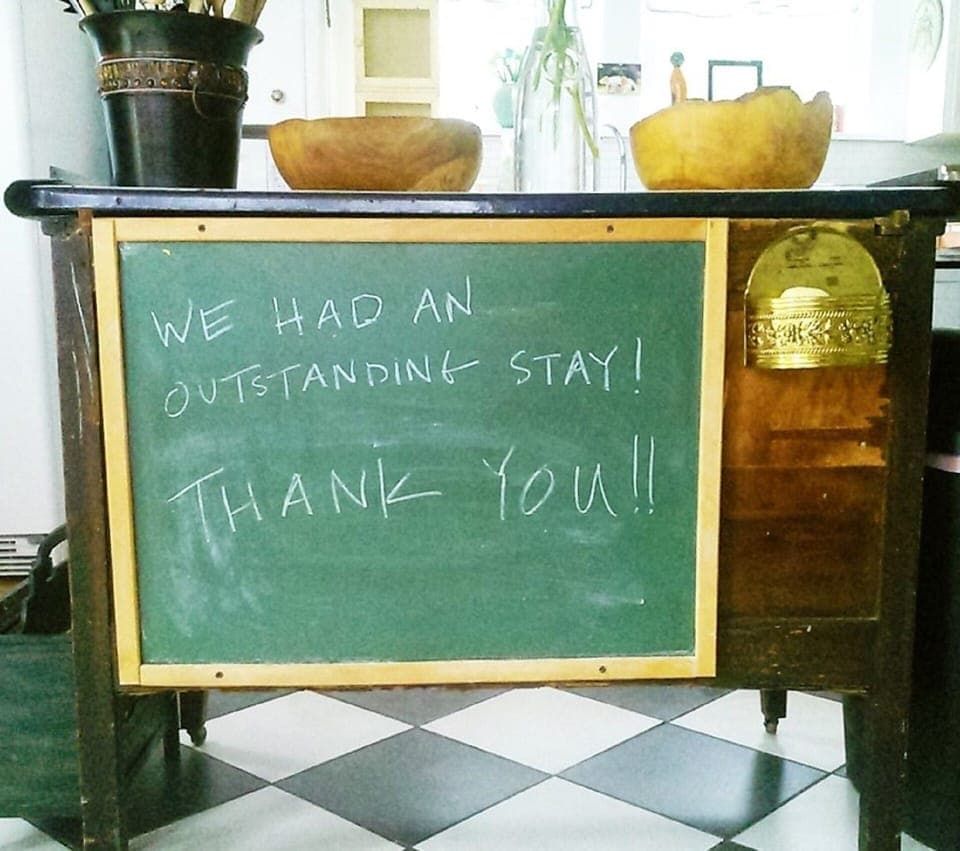 WE HAD AN
OUTSTANDING STAY!
THANK YOU!!